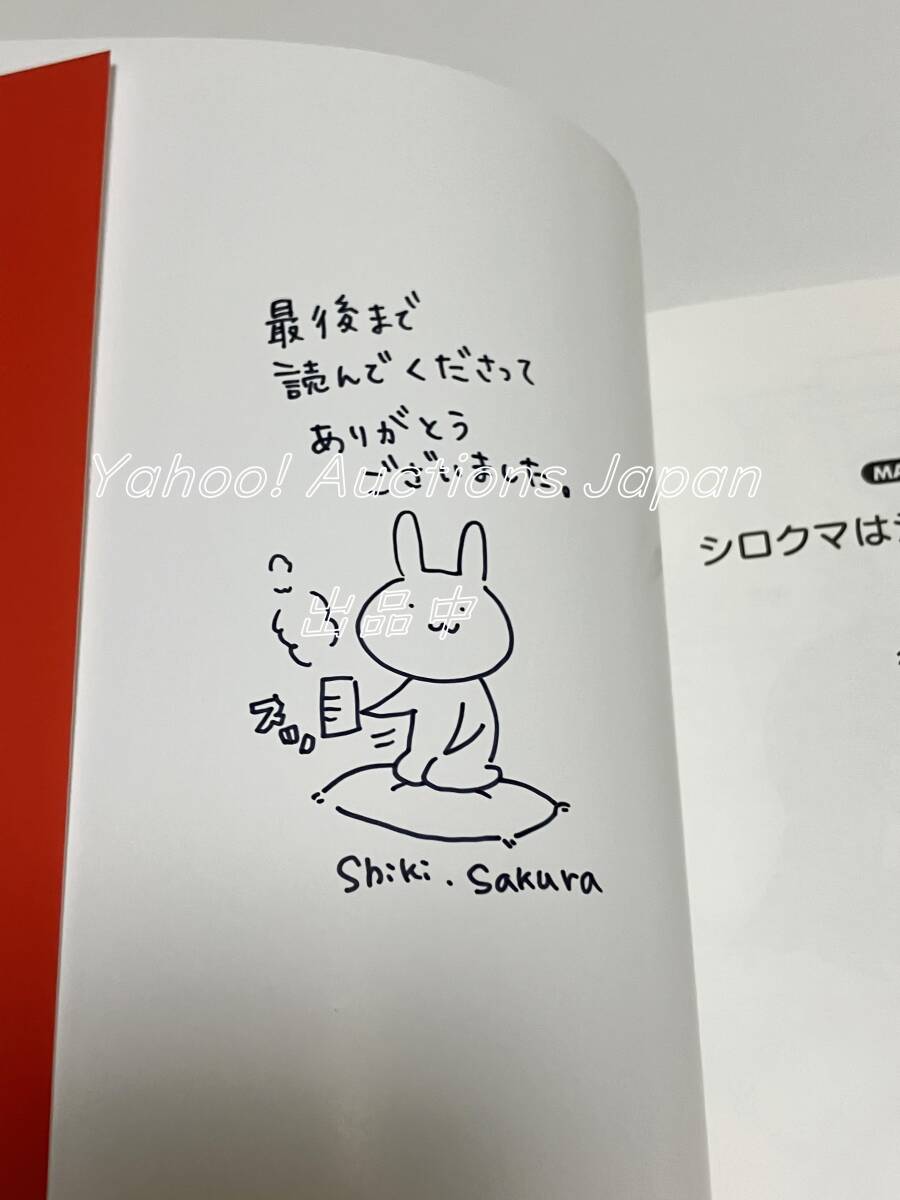 最後まで
読んでくださって
ありがとう
ございました。
Yahoo! Auctions Japan
出品中
ズッ
Shiki. Sakura
MA
シロクマは